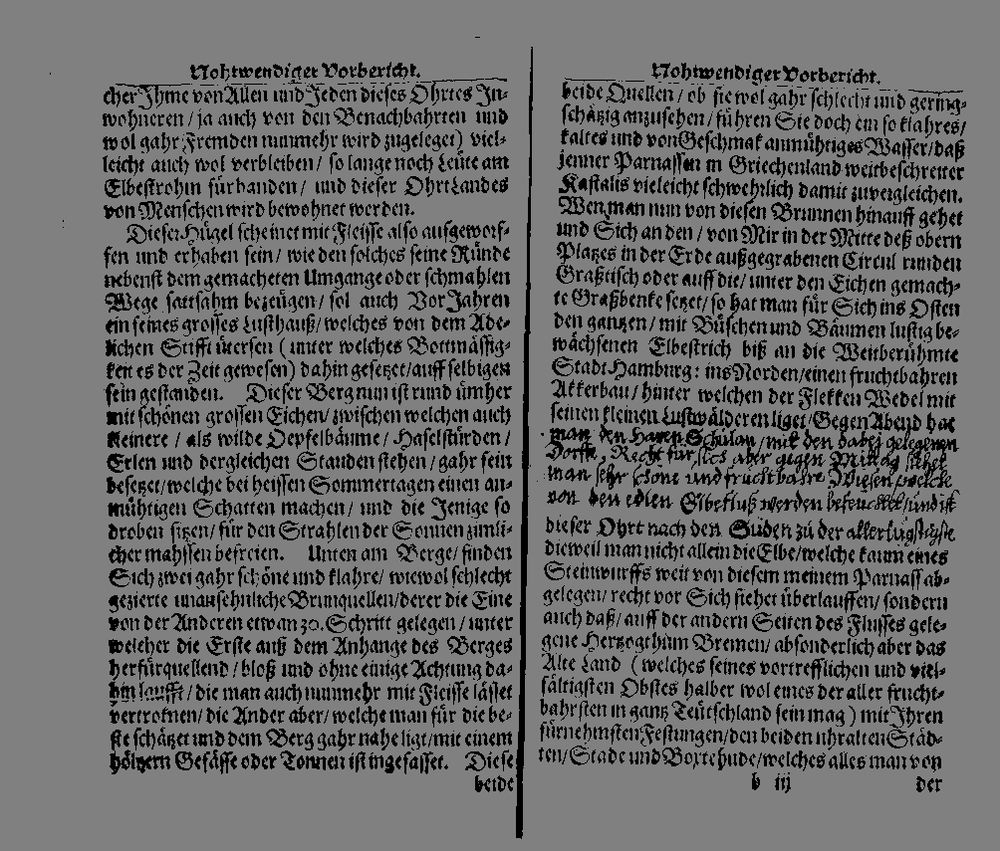 Nohtwendiger Vorbericht.
cher Ihme von Allen und Jeden dieses Ohrtes In-
wohneren / ja auch von den Benachbahrten und
wol gahr Fremden nunmehr wird zugeleget) viel-
leicht auch wol verbleiben / so lange noch Leüte am
Elbestrohm fürhanden / und dieser Ohrt Landes
von Menschen wird bewohnet werden.
Dieser Hügel scheinet mit Fleisse also aufgeworf-
fen und erhaben sein / wie den solches seine Ründe
nebenst dem gemacheten Umgange oder schmahlen
Wege sattsahm bezeügen / sol auch Vor Jahren
ein feines grosses Lusthauß / welches von dem Ade-
lichen Stifft ütersen (unter welches Bottmässig-
keit es der Zeit gewesen) dahin gesetzet / auff selbigen
sein gestanden. Dieser Berg nun ist rund ümher
mit schönen grossen Eichen / zwischen welchen auch
kleinere / als wilde Oepfelbäume / Haselstürden /
Erlen und dergleichen Stauden stehen / gahr fein
besetzet / welche bei heissen Sommertagen einen an-
mühtigen Schatten machen / und die Jenige so
droben sitzen / für den Strahlen der Sonnen zimli-
cher mahssen befreien. Unten am Berge / finden
Sich zwei gahr schöne und klahre / wiewol schlecht
gezierte unansehnliche Brunquellen / derer die Eine
von der Anderen etwan 30. Schritt gelegen / unter
welcher die Erste auß dem Anhange des Berges
herfürquellend / bloß und ohne einige Achtung da-
hin laufft / die man auch nunmehr mit Fleisse lässet
vertroknen / die Ander aber / welche man für die be-
ste schätzet und dem Berg gahr nahe ligt / mit einem
höltzern Gefässe oder Tonnen ist ingefasset. Diese
beide
Nohtwendiger Vorbericht.
beide Quellen / ob sie wol gahr schlecht und gering-
schätzig anzusehen / führen Sie doch ein so klahres /
kaltes und von Geschmak anmühtiges Wasser / daß
jenner Parnassen in Griechenland weitbeschreiter
Kastalis vieleicht schwehrlich damit zuvergleichen.
Wen man nun von diesen Brunnen hinauff gehet
und Sich an den / von Mir in der Mitte deß obern
Platzes in der Erde außgegrabenen Circul runden
Graßtisch oder auff die / unter den Eichen gemach-
te Graßbenke setzet / so hat man für Sich ins Osten
den gantzen / mit Büschen und Bäumen lustig be-
wächsenen Elbestrich biß an die Weitberühmte
Stadt Hamburg: ins Norden / einen fruchtbahren
Akkerbau / hinter welchen der Flekken Wedel mit
seinen kleinen Lustwälderen liget / Gegen Abend hat
man den Haven Schulau / mit den dabei gelegenen
Dorfe, Recht für sich aber gegen Mittag sihet
man sehr schöne und fruchtbahre Wiesen, welche
von den edlen Elbefluß werden befeuchtet / und ist
dieser Ohrt nach den Süden zu der allerlustigste
dieweil man nicht allein die Elbe / welche kaum eines
Steinwurffs weit von diesem meinem Parnass ab-
gelegen / recht vor Sich siehet überlauffen / sondern
auch daß / auff der andern Seiten des Flusses gele-
gene Hertzogthüm Bremen / absonderlich aber das
Alte Land (welches seines vortrefflichen und viel-
fältigsten Obstes halber wol eines der aller frucht-
bahrsten in gantz Teütschland sein mag) mit Ihren
fürnehmsten Festungen / den beiden uhralten Städ-
ten / Stade und Boxtehude / welches alles man von
b iij der